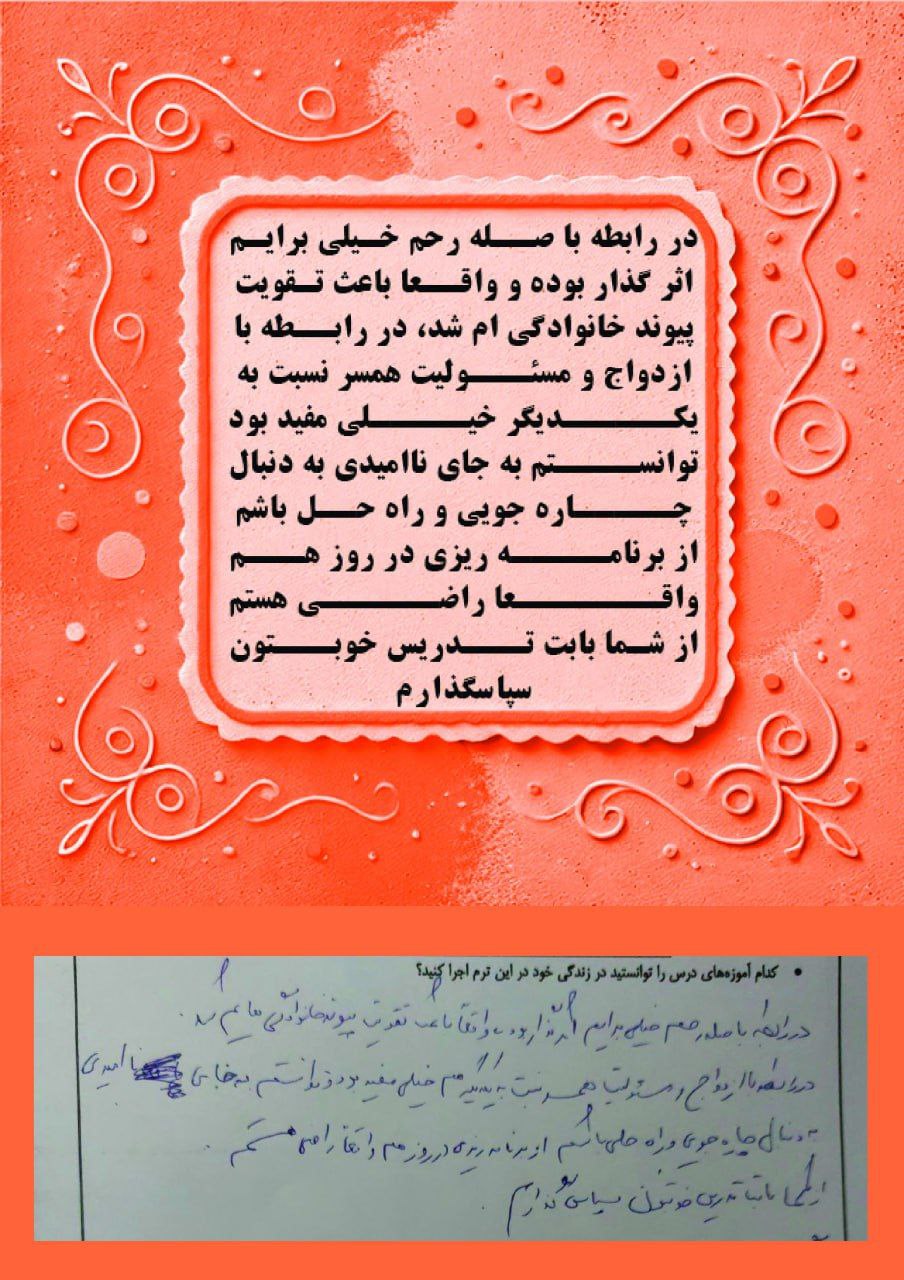 در رابطه با صله رحم خیلی برایم
اثر گذار بوده و واقعا باعث تقویت
پیوند خانوادگی ام شد، در رابطه با
ازدواج و مسئولیت همسر نسبت به
یکدیگر خیلی مفید بود
توانستم به جای ناامیدی به دنبال
چاره جویی و راه حل باشم
از برنامه ریزی در روز هم
واقعا راضی هستم
از شما بابت تدریس خوبتون
سپاسگذارم
• کدام آموزه‌های درس را توانستید در زندگی خود در این ترم اجرا کنید؟
در رابطه با صله رحم خیلی برایم اثر گذار بوده و واقعاً باعث تقویت پیوند خانوادگی هایم شد.
در رابطه با ازدواج و مسئولیت همسر نسبت به یکدیگر هم خیلی مفید بود و توانستم به جای ناامیدی
به دنبال چاره جویی و راه حلی باشم از برنامه ریزی در روز هم واقعاً راضی هستم.
از شما بابت تدریس خوبتون سپاس گذارم